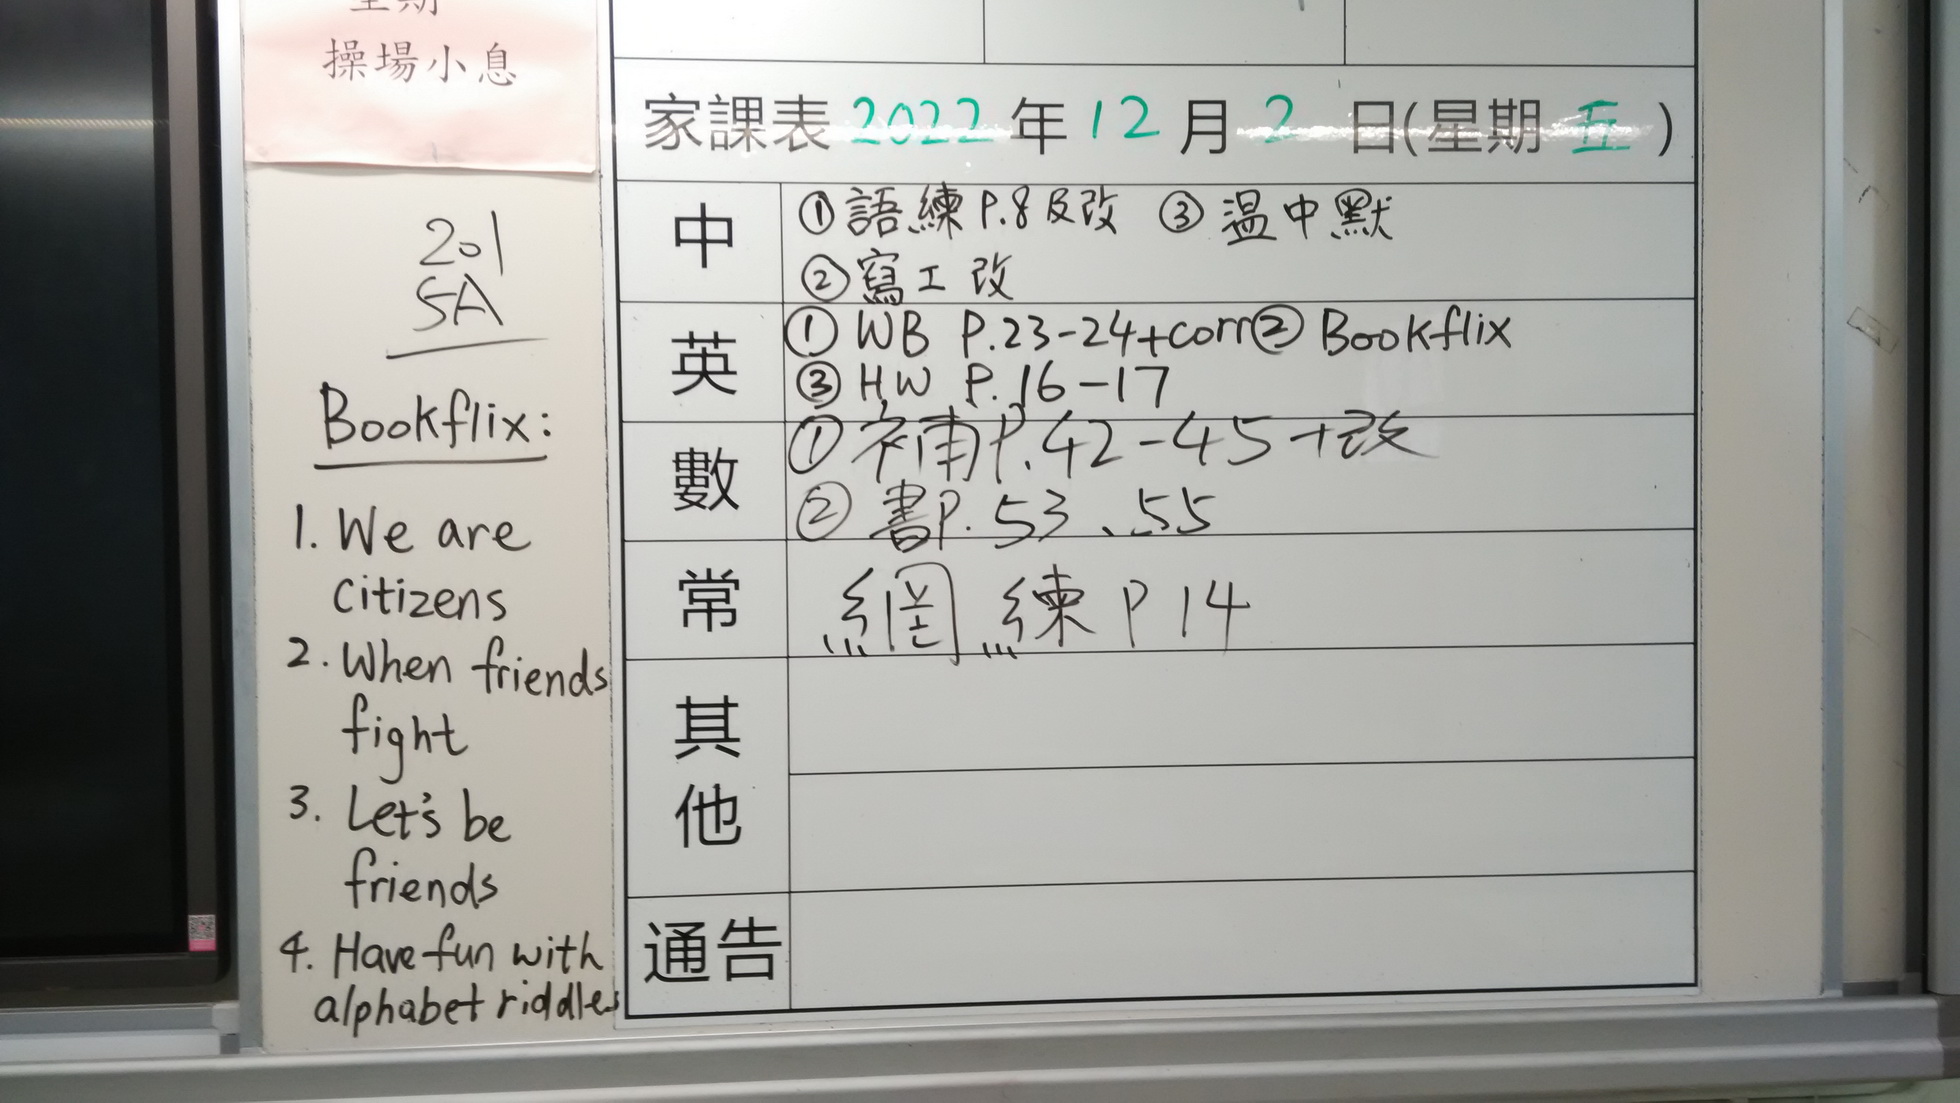 星期
操場小息
201
5A
Bookflix:
1. We are
citizens
2. When friends
fight
3. Let's be
friends
4. Have fun with
alphabet riddles
家課表 2022 年 12 月 2 日(星期 五 )
中
① 語練 P.8及改 ③ 溫中默
② 寫工改
英
① WB P.23-24+corr ② Bookflix
③ HW P.16-17
數
① 補P.42-45+改
② 書P.53、55
常
網練P14
其他
通告